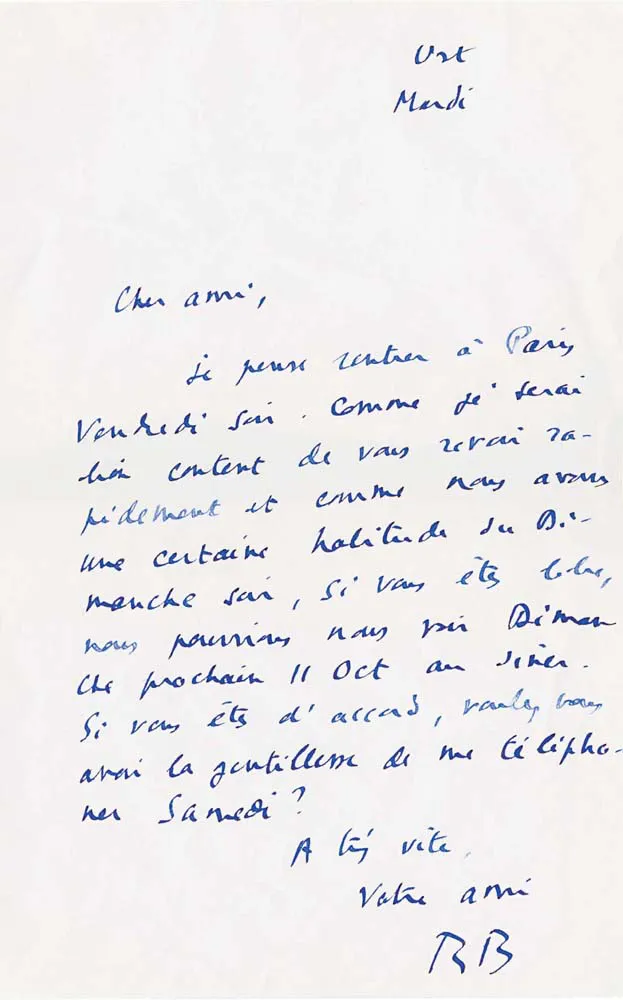 Urt
Mardi
Cher ami,
Je pense rentrer à Paris
Vendredi soir. Comme je serai
bien content de vous revoir ra-
pidement et comme nous avons
une certaine habitude du Di-
manche soir, si vous êtes libre,
nous pourrions nous voir Diman
che prochain 11 Oct au dîner.
Si vous êtes d'accord, voulez vous
avoir la gentillesse de me télépho-
ner Samedi?
A très vite.
Votre ami
RB